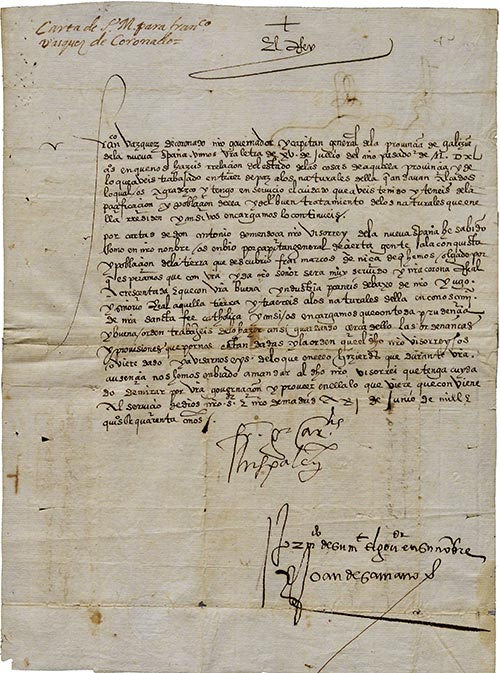 Carta de S. M. para franco
Vasquez de Coronado
El Rey
franco Vazquez de coronado nro governador y capitan general dela provincia de galizia
dela nueva españa. vimos vra letra de xv. de Jullio del año pasado de M.D.xl
en que nos hazeis rrelacion del estado delas cosas de aquella provincia y de
lo que aveis trabajado en traer de paz alos naturales della que andavan alçados
lo qual os agradezco y tengo en servicio el cuidado que aveis tenido y teneis dela
pacificacion y poblacion de esa y del buen tratamiento de los naturales que en e
lla rresiden y ansi vos encargamos lo continueis.
por cartas de don antonio de mendoça nro Visorrey dela nueva España he sabido
como en nro nonbre os enbio por capitan general de cierta gente ala conquista
y poblacion dela tierra que descubrio fray marcos de niça de que hemos holgado por
que esperamos que con vra yda nro señor sera muy servido y nra corona rreal
acrescentada y que con vra buena yndustria porneis debaxo de nro yugo
y señorio rreal aquella tierra y traereis alos naturales della en conoscimi
de nra sancta fee catholica y ansi os encargamos que con toda prudençia
y buena orden trabajeis delo hazer ansi guardando cerca dello las ordenanças
y provisiones que por nos estan dadas y la orden que el dho nro visorrey os
oviere dado y avisarnos eys delo que en ello hizierdes que durante vra
ausençia nos hemos enbiado a mandar al dho nro visorrei que tenga cuyda
do de mirar por vra governacion y proveer en ella lo que viere que conviene
Al servicio de dios nro S. E nro de madrid A de Junio de mill E
quis E quarenta años
fr. g. Carlis
hispalen
por mdo de su mt El gor en su nonbre
Joan de Samano